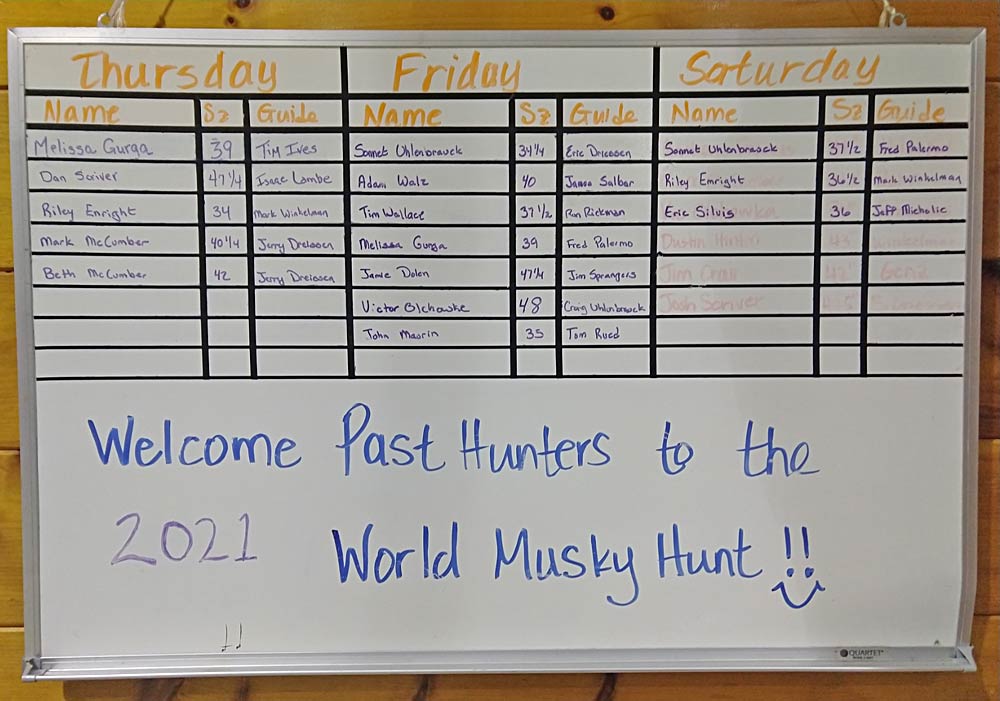 Thursday Friday Saturday
Name Sz Guide Name Sz Guide Name Sz Guide
Melissa Gurga 39 Tim Ives Sonnet Uhlenbrauck 34 1/4 Eric Driessen Sonnet Uhlenbrauck 37 1/2 Fred Palermo
Dan Scriver 47 1/4 Isaac Lambe Adam Walz 40 James Salbar Riley Emright 36 1/2 Mark Winkelman
Riley Enright 34 Mark Winkelman Tim Wallace 37 1/2 Ron Rickman Eric Silvis 36 Jeff Michalic
Mark McCumber 40 1/4 Jerry Dreissen Melissa Gurga 39 Fred Palermo Dustin 43 Winkelman
Beth McCumber 42 Jerry Dreissen Jamie Dolen 47 1/4 Jim Sprangers Jim Crail 42 Genz
Victor 48 Craig Uhlenbrauck Josh Scriver
John 35 Tom Rued
Welcome Past Hunters to the
2021 World Musky Hunt !!
QUARTET